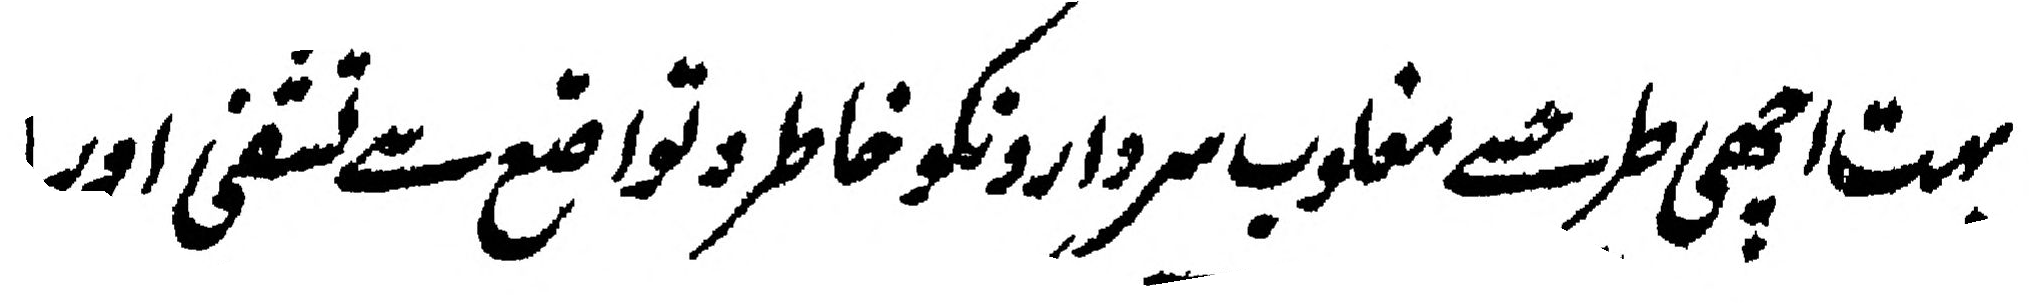 بہت اچھی طرحسے مغلوب سردارونکو خاطر و تواضع سے تشفی اور